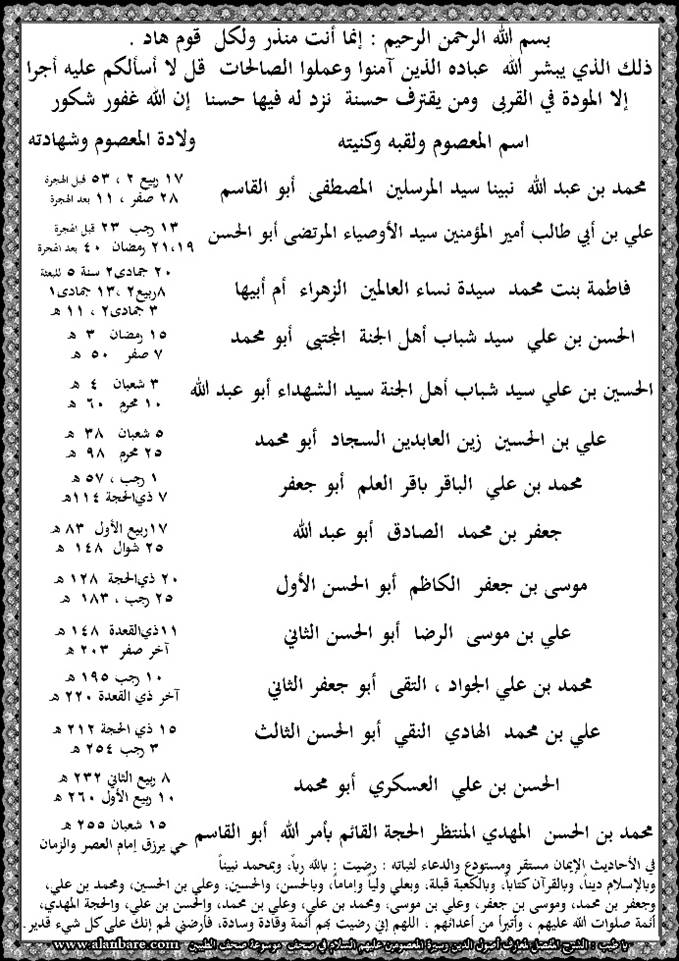 بسم الله الرحمن الرحيم : إنما أنت منذر ولكل قوم هاد .
ذلك الذي يبشر الله عباده الذين آمنوا وعملوا الصالحات قل لا أسألكم عليه أجرا
إلا المودة في القربى ومن يقترف حسنة نزد له فيها حسنا إن الله غفور شكور
اسم المعصوم ولقبه وكنيته
ولادة المعصوم وشهادته
محمد بن عبد الله نبينا سيد المرسلين المصطفى أبو القاسم
١٧ ربيع ٢ ، ٥٣ قبل الهجرة
٢٨ صفر ، ١١ بعد الهجرة
علي بن أبي طالب أمير المؤمنين سيد الأوصياء المرتضى أبو الحسن
١٣ رجب ٢٣ قبل الهجرة
٢١،١٩ رمضان ٤٠ بعد الهجرة
فاطمة بنت محمد سيدة نساء العالمين الزهراء أم أبيها
٢٠ جمادى٢ سنة ٥ للبعثة
٨ربيع٢ ،١٣ جمادى١
٣ جمادى٢ ، ١١ هـ
الحسن بن علي سيد شباب أهل الجنة المجتبى أبو محمد
١٥ رمضان ٣ هـ
٧ صفر ٥٠ هـ
الحسين بن علي سيد شباب أهل الجنة سيد الشهداء أبو عبد الله
٣ شعبان ٤ هـ
١٠ محرم ٦٠ هـ
علي بن الحسين زين العابدين السجاد أبو محمد
٥ شعبان ٣٨ هـ
٢٥ محرم ٩٨ هـ
محمد بن علي الباقر باقر العلم أبو جعفر
١ رجب ، ٥٧ هـ
٧ ذي‌الحجة ١١٤هـ
جعفر بن محمد الصادق أبو عبد الله
١٧ربيع الأول ٨٣ هـ
٢٥ شوال ١٤٨ هـ
موسى بن جعفر الكاظم أبو الحسن الأول
٢٠ ذي‌الحجة ١٢٨ هـ
٢٥ رجب ، ١٨٣ هـ
علي بن موسى الرضا أبو الحسن الثاني
١١ذي‌القعدة ١٤٨ هـ
آخر صفر ٢٠٣ هـ
محمد بن علي الجواد ، التقى أبو جعفر الثاني
١٠ رجب ١٩٥ هـ
آخر ذي القعدة ٢٢٠ هـ
علي بن محمد الهادي النقي أبو الحسن الثالث
١٥ ذي الحجة ٢١٢ هـ
٣ رجب ٢٥٤ هـ
الحسن بن علي العسكري أبو محمد
٨ ربيع الثاني ٢٣٢ هـ
١٠ ربيع الأول ٢٦٠ هـ
محمد بن الحسن المهدي المنتظر الحجة القائم بأمر الله أبو القاسم
١٥ شعبان ٢٥٥ هـ
حي يرزق إمام العصر والزمان
في الأحاديث الإيمان مستقر ومستودع والدعاء لثباته : رضيت بالله رباً، وبمحمد نبيناً
وبالإسلام ديناً، وبالقرآن كتاباً، وبالكعبة قبلة، وبعلي ولياً وإماماً، وبالحسن، والحسين، وعلي بن الحسين، ومحمد بن علي،
وجعفر بن محمد، وموسى بن جعفر، وعلي بن موسى، ومحمد بن علي، وعلي بن محمد، والحسن بن علي، والحجة المهدي،
أئمة صلوات الله عليهم ، وأتبرأ من أعدائهم . اللهم إني رضيت بهم أئمة وقادة وسادة، فأرضني لهم إنك على كل شيء قدير.
يا طيب : الشرح المفصل لمعارف أصول الدين وسيرة المعصومين عليهم السلام في صحف موسوعة صحف الطيبين www.alanbare.com